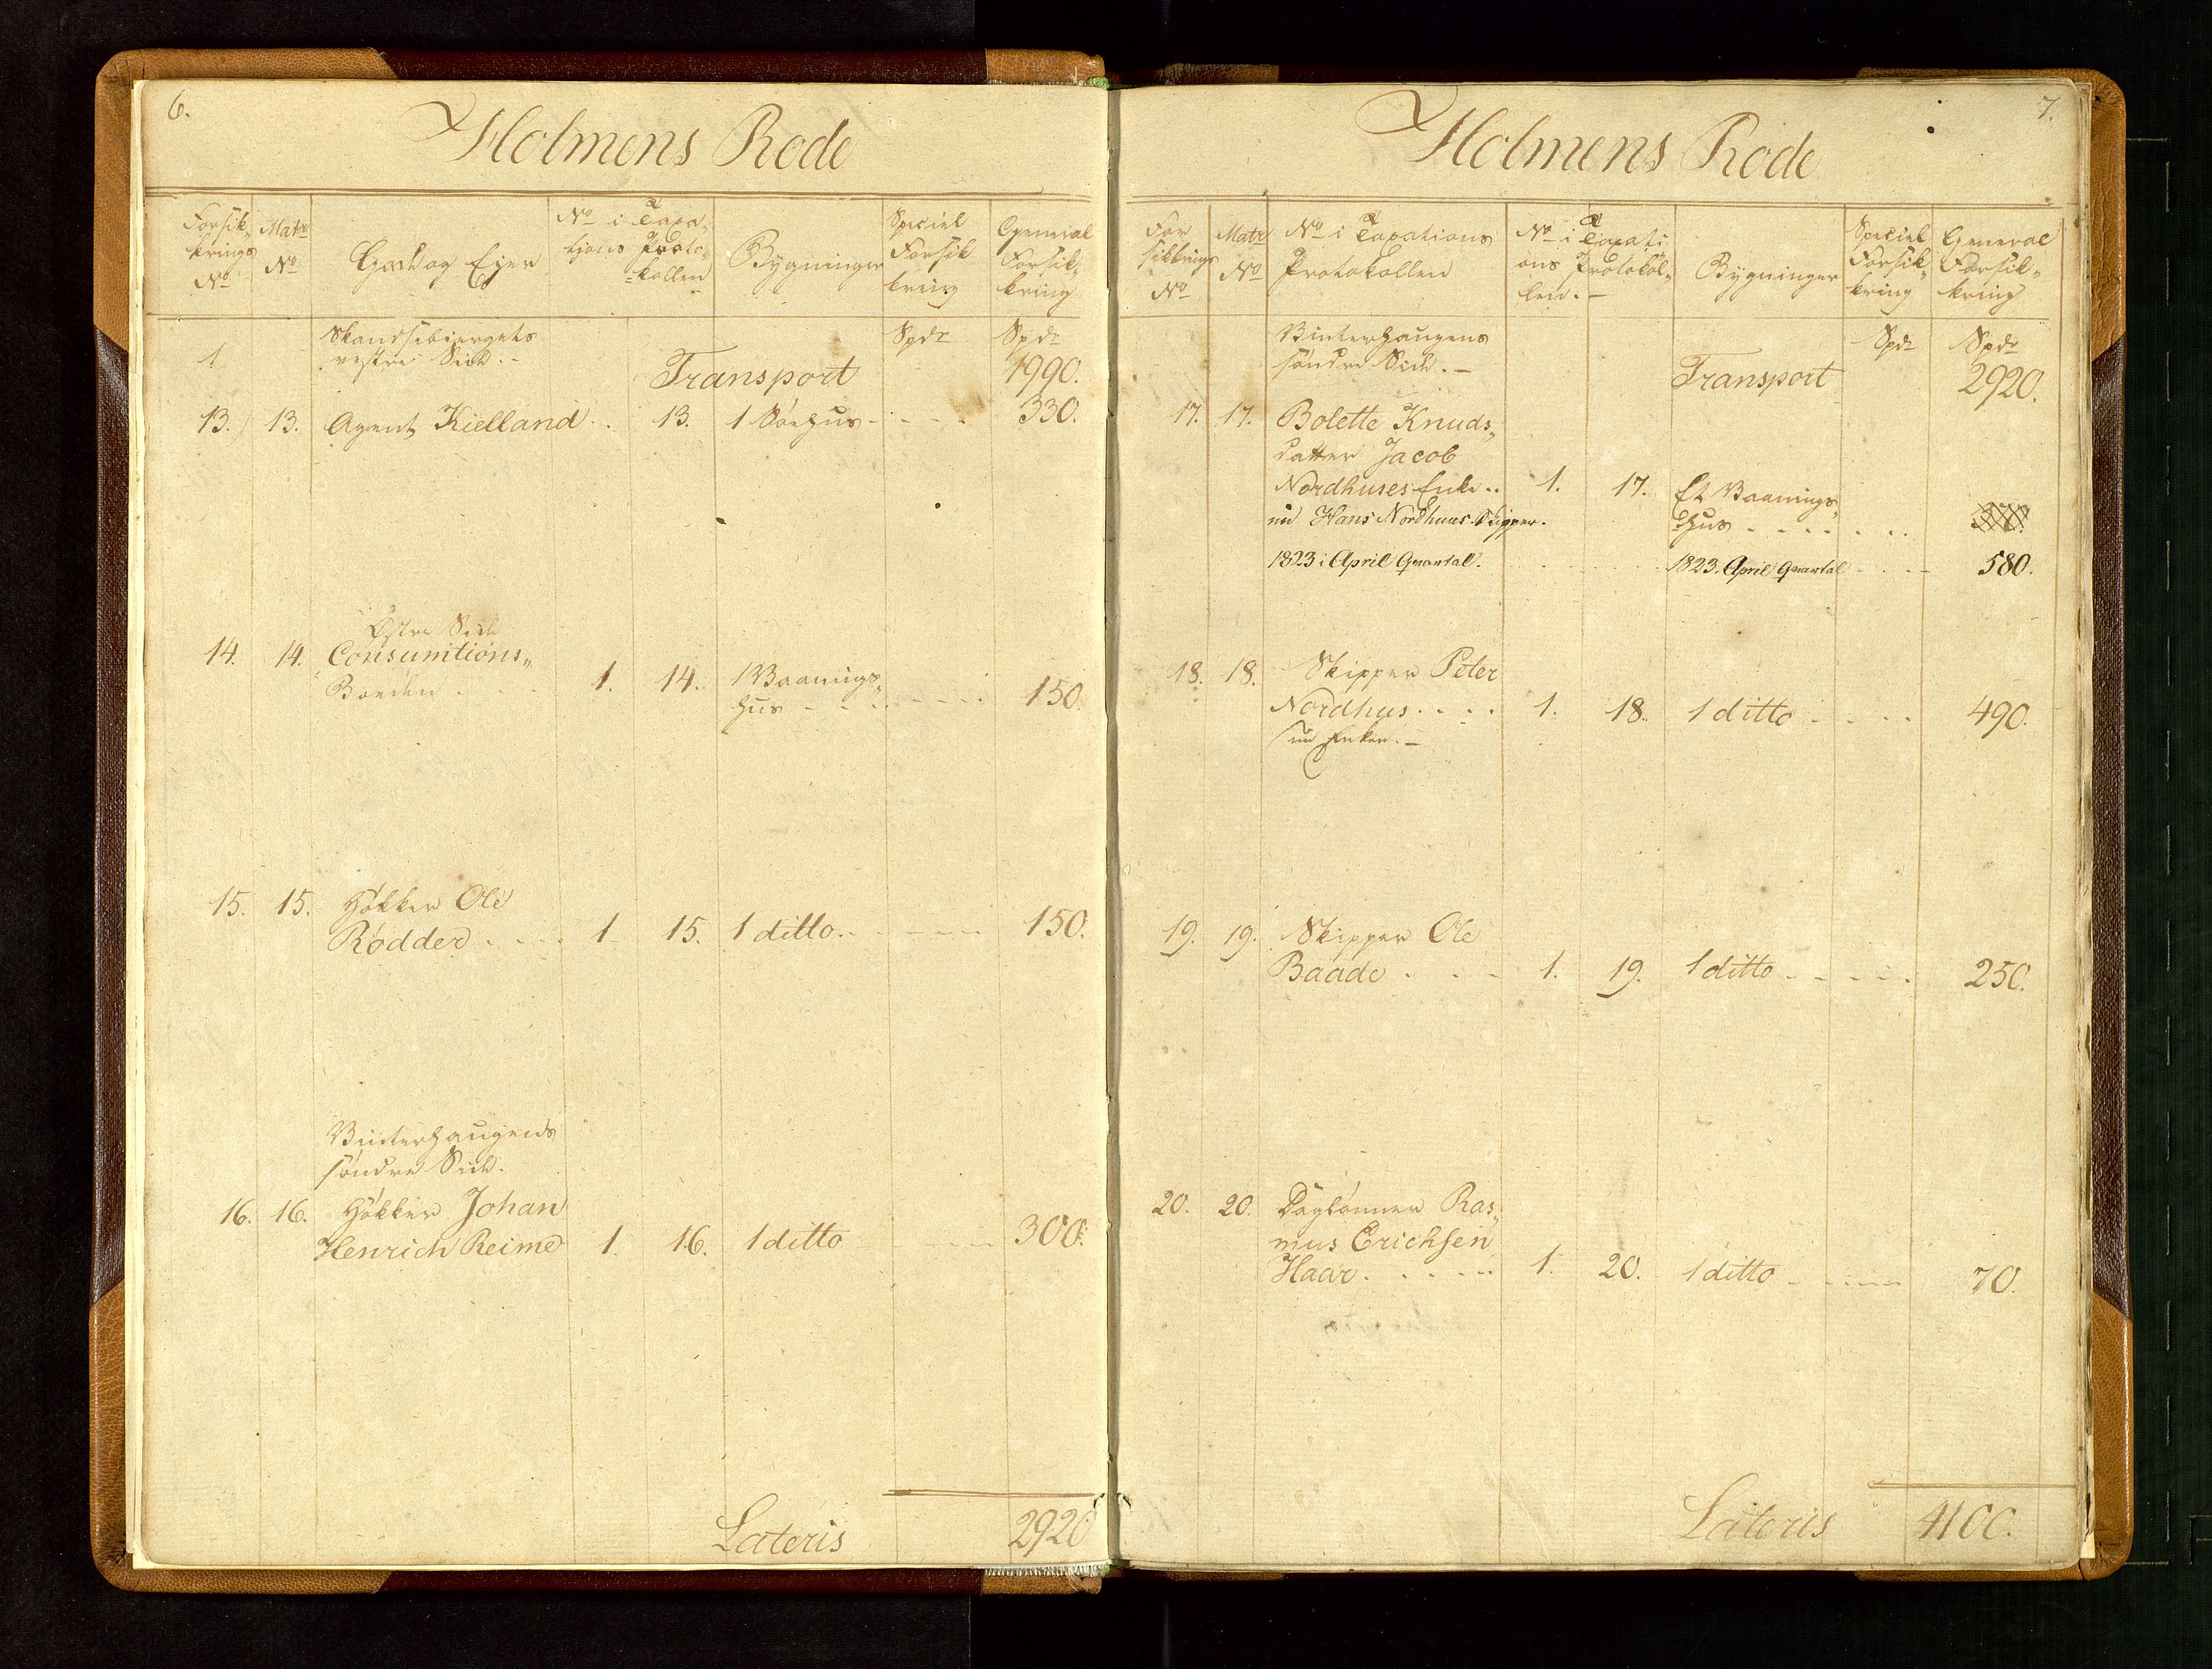 6.
Holmens Rode
Forsik- krings No
Matr No
Gade og Ejer
No i Taxa- tjons Proto- kollen
Bygninger
Speciel Forsik kring
General Forsik- kring
1 Skandsebiergets
vestre Side.- Spdr Spdr
Transport 1990.
13. 13. Agent Kielland.. 13. 1 Søehus - - - - 330.
Østre Side
14. 14. Consumtions-
Boeden . . . 1. 14. 1 Vaanings-
hus - - - - - - 150.
15. 15. Høkker Ole
Rødder . . . 1. 15. 1 ditto. - - - - 150.
Vinterhaugens
søndre Side.
16. 16. Høkker Johan
Henrich Reime 1. 16. 1 ditto - - - - 300.
Lateris 2920
7.
Holmens Rode
For sikkrings No
Matr No
No i Taxations Protokollen
No i Taxati ons Protokol- len.-
Bygninger
Speciel Forsik- kring
General Forsik- kring
Vinterhaugens
søndre Side.- Spdr Spdr
Transport 2920.
17. 17. Bolette Knuds-
datter Jacob
Nordhuses Enke.. 1. 17. Et Vaanings-
nu Hans Nordhuus Skipper. hus - - - - - -
1823 i April Qvartal. . . . . . 1823. April Qvartal - - - 580.
18. 18. Skipper Peter
Nordhus . . . . 1. 18. 1 ditto - - - - 490.
nu Enken.-
19. 19. Skipper Ole
Baade . . . 1. 19. 1 ditto - - - - 250.
20. 20. Daglønner Ras-
mus Erichsen
Haar. . . . . 1. 20. 1 ditto - - - - 70.
Lateris 4100.